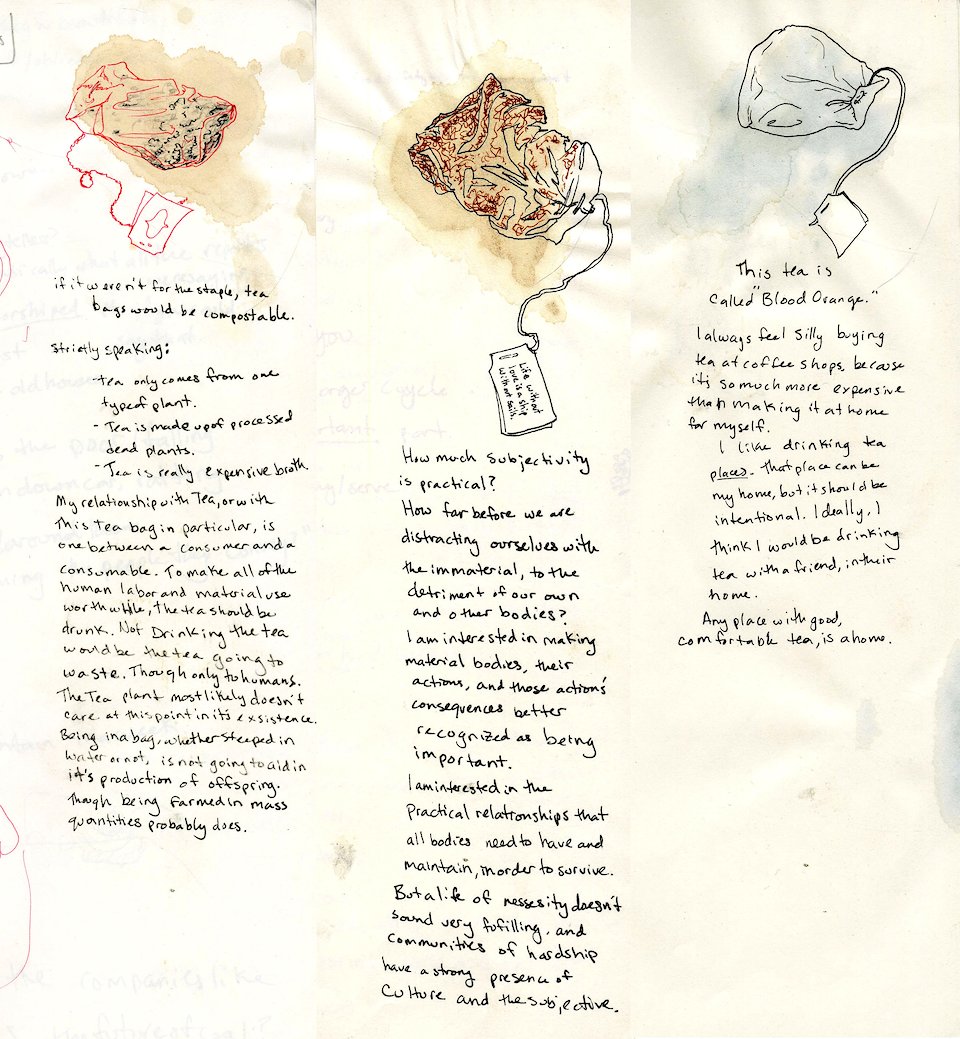 if it weren't for the staple, tea
bags would be compostable.
Strictly speaking:
- tea only comes from one
type of plant.
- Tea is made up of processed
dead plants.
- Tea is really expensive broth.
My relationship with Tea, or with
This tea bag in particular, is
one between a consumer and a
consumable. To make all of the
human labor and material use
worth while, the tea should be
drunk. Not Drinking the tea
would be the tea going to
waste. Though only to humans.
The Tea plant most likely doesn't
care at this point in it's exsistence.
Being in a bag, whether steeped in
water or not, is not going to aid in
it's production of offspring.
Though being farmed in mass
quantities probably does.
Life without
love is a ship
without sails.
How much subjectivity
is practical?
How far before we are
distracting ourselves with
the immaterial, to the
detriment of our own
and other bodies?
I am interested in making
material bodies, their
actions, and those action's
consequences better
recognized as being
important.
I am interested in the
Practical relationships that
all bodies need to have and
maintain, in order to survive.
But a life of nessesity doesn't
sound very fufilling, and
communities of hardship
have a strong presence of
Culture and the subjective.
This tea is
called "Blood Orange."
I always feel silly buying
tea at coffee shops, because
it's so much more expensive
than making it at home
for myself.
I like drinking tea
places. That place can be
my home, but it should be
intentional. Ideally, I
think I would be drinking
tea with a friend, in their
home.
Any place with good,
comfortable tea, is a home.
the companies like